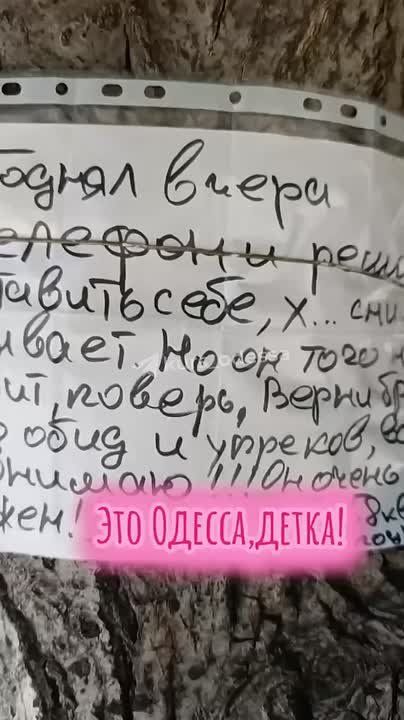 однял вчера
елефон и реши
тавить себе, х... сни
ывает. Но он того н
ит, поверь, Верни бр
обид и упреков,
онимаю!!! Он очень
жен!
Это Одесса, детка!